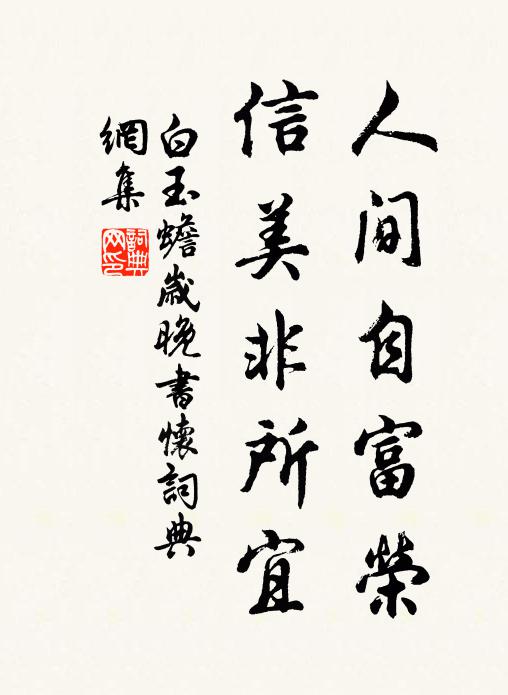 人间自富榮
信美非所宜
白玉蟾歲晚書懷詞典
網集
詞典
网印